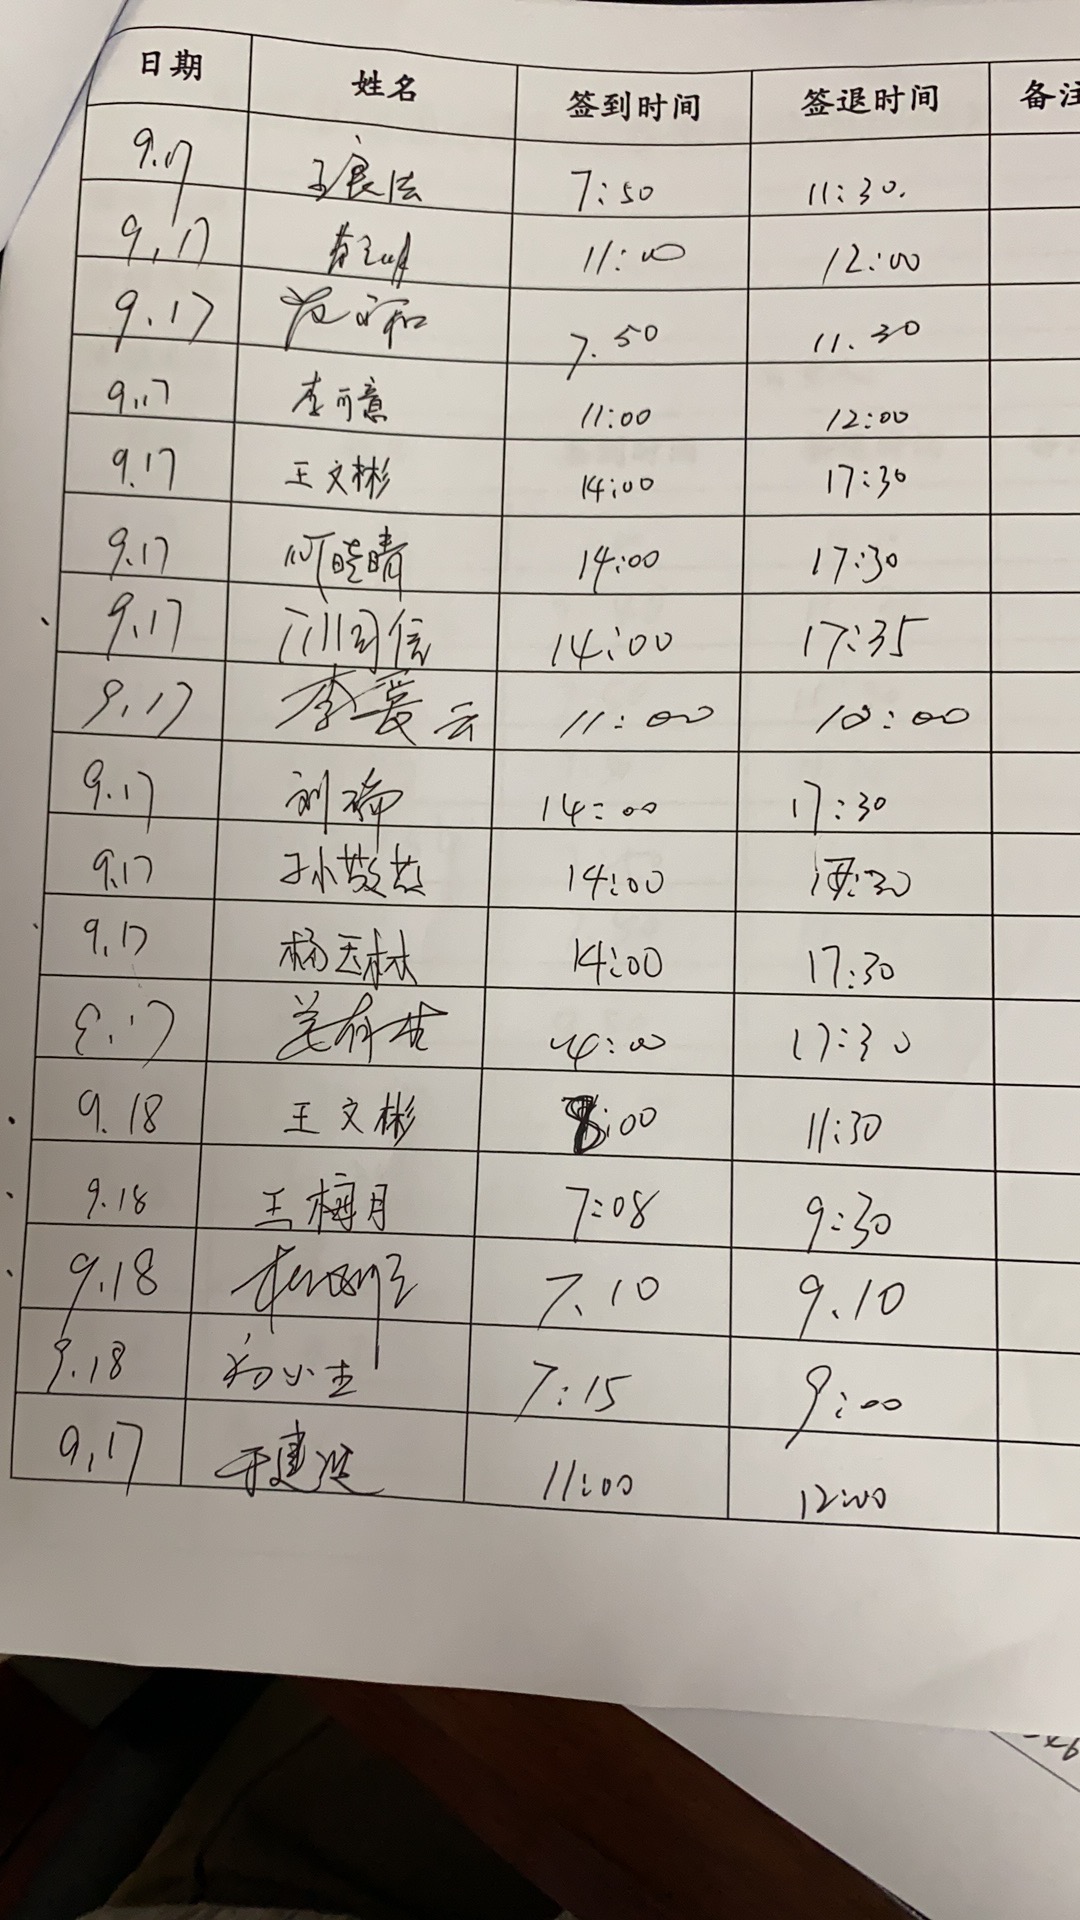 日期 姓名 签到时间 签退时间 备注
9.17 王良法 7:50 11:30.
9.17 11:00 12:00
9.17 7.50 11.30
9.17 李可意 11:00 12:00
9.17 王文彬 14:00 17:30
9.17 何晓晴 14:00 17:30
9.17 14:00 17:35
9.17 李爱云 11:00
9.17 刘 14:00 17:30
9.17 孙敬 14:00 :30
9.17 杨玉林 14:00 17:30
9.17 姜 14:00 17:30
9.18 王文彬 8:00 11:30
9.18 王梅月 7:08 9:30
9.18 7.10 9.10
9.18 7:15 9:00
9.17 于建 11:00 12:00